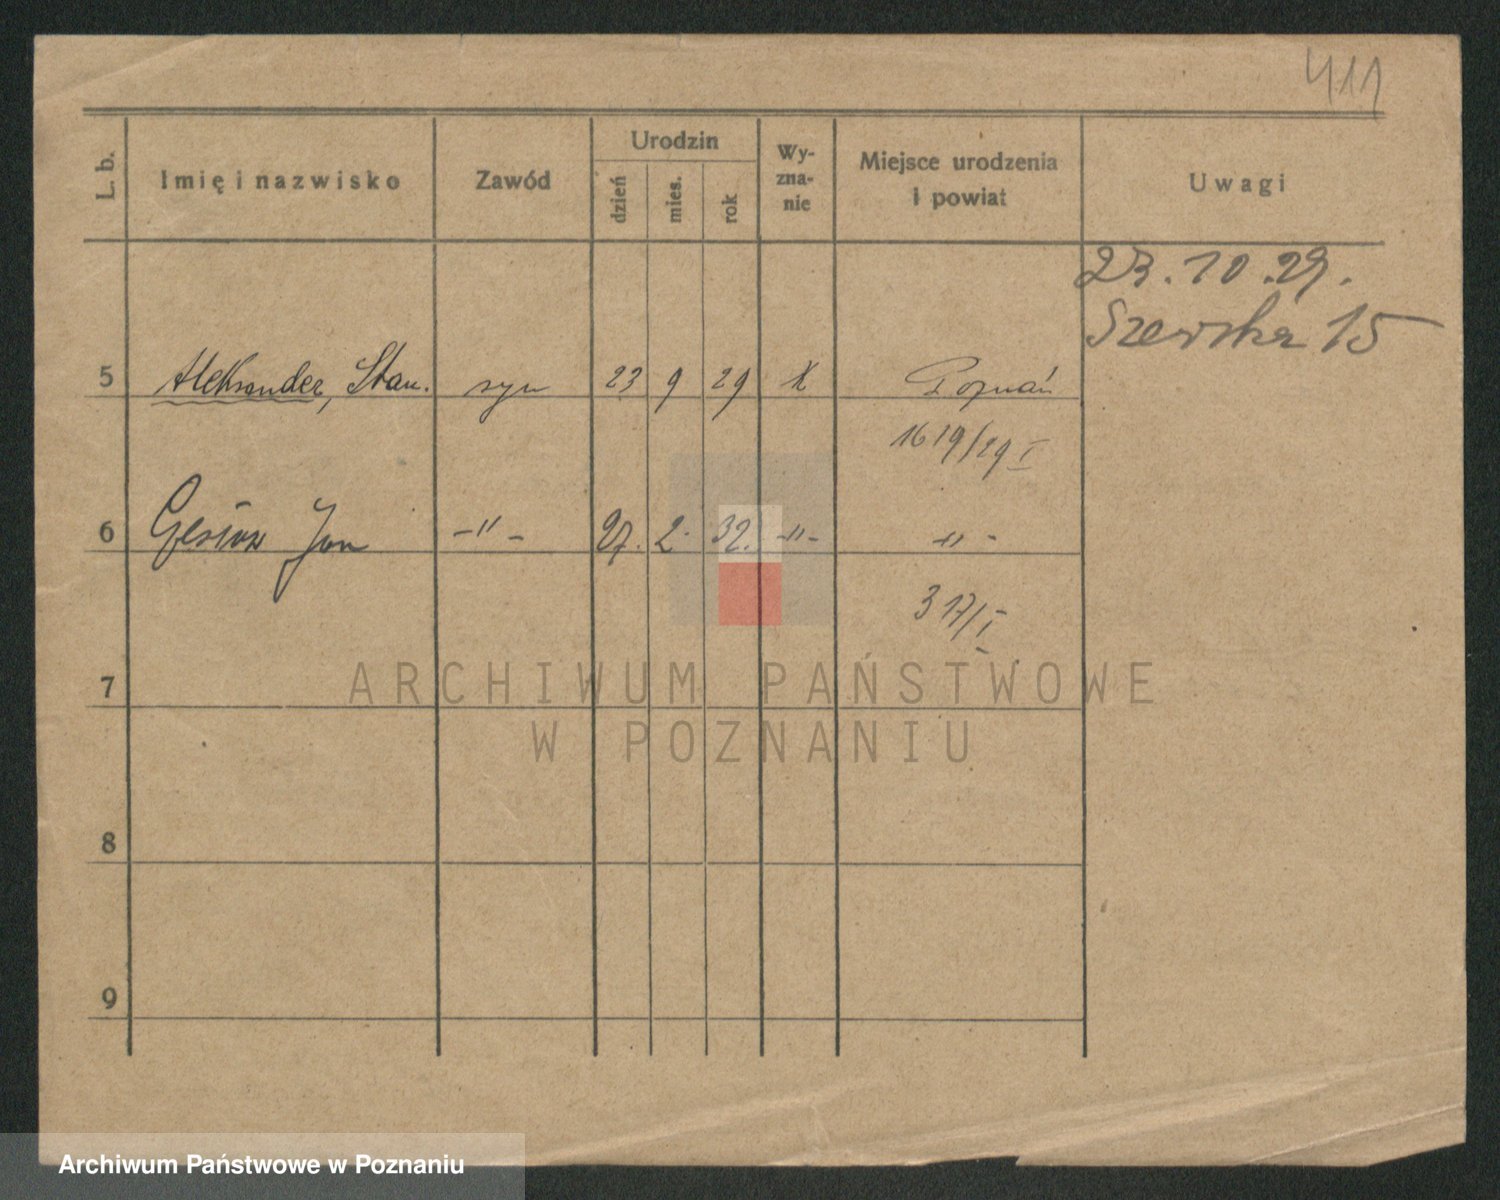 411
L. b.
Imię i nazwisko
Zawód
Urodzin
dzień
mies.
rok
Wy-
zna-
nie
Miejsce urodzenia
i powiat
Uwagi
23.10.29.
Szewska 15
5 Aleksander, Stan. syn 23 9 29 K Poznań
1619/29 I
6 Jan -"- 27. 2. 32. -"- -"-
317/I
7
8
9
ARCHIWUM PAŃSTWOWE
W POZNANIU
Archiwum Państwowe w Poznaniu